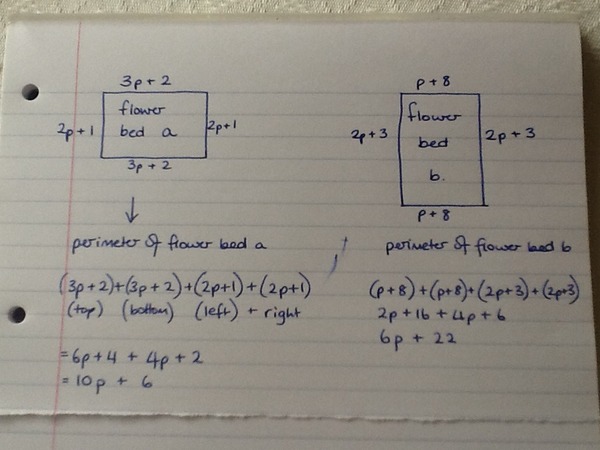 3p + 2
flower
2p + 1
bed a
2p+1
3p + 2
perimeter of flower bed a
(3p+2)+(3p+2)+(2p+1)+(2p+1)
(top) (bottom) (left) + right
=6p+4 + 4p+2
=10p + 6
p + 8
flower
2p + 3
bed
2p + 3
b.
p + 8
perimeter of flower bed b
(p+8)+(p+8)+(2p+3)+(2p+3)
2p + 16 + 4p + 6
6p + 22